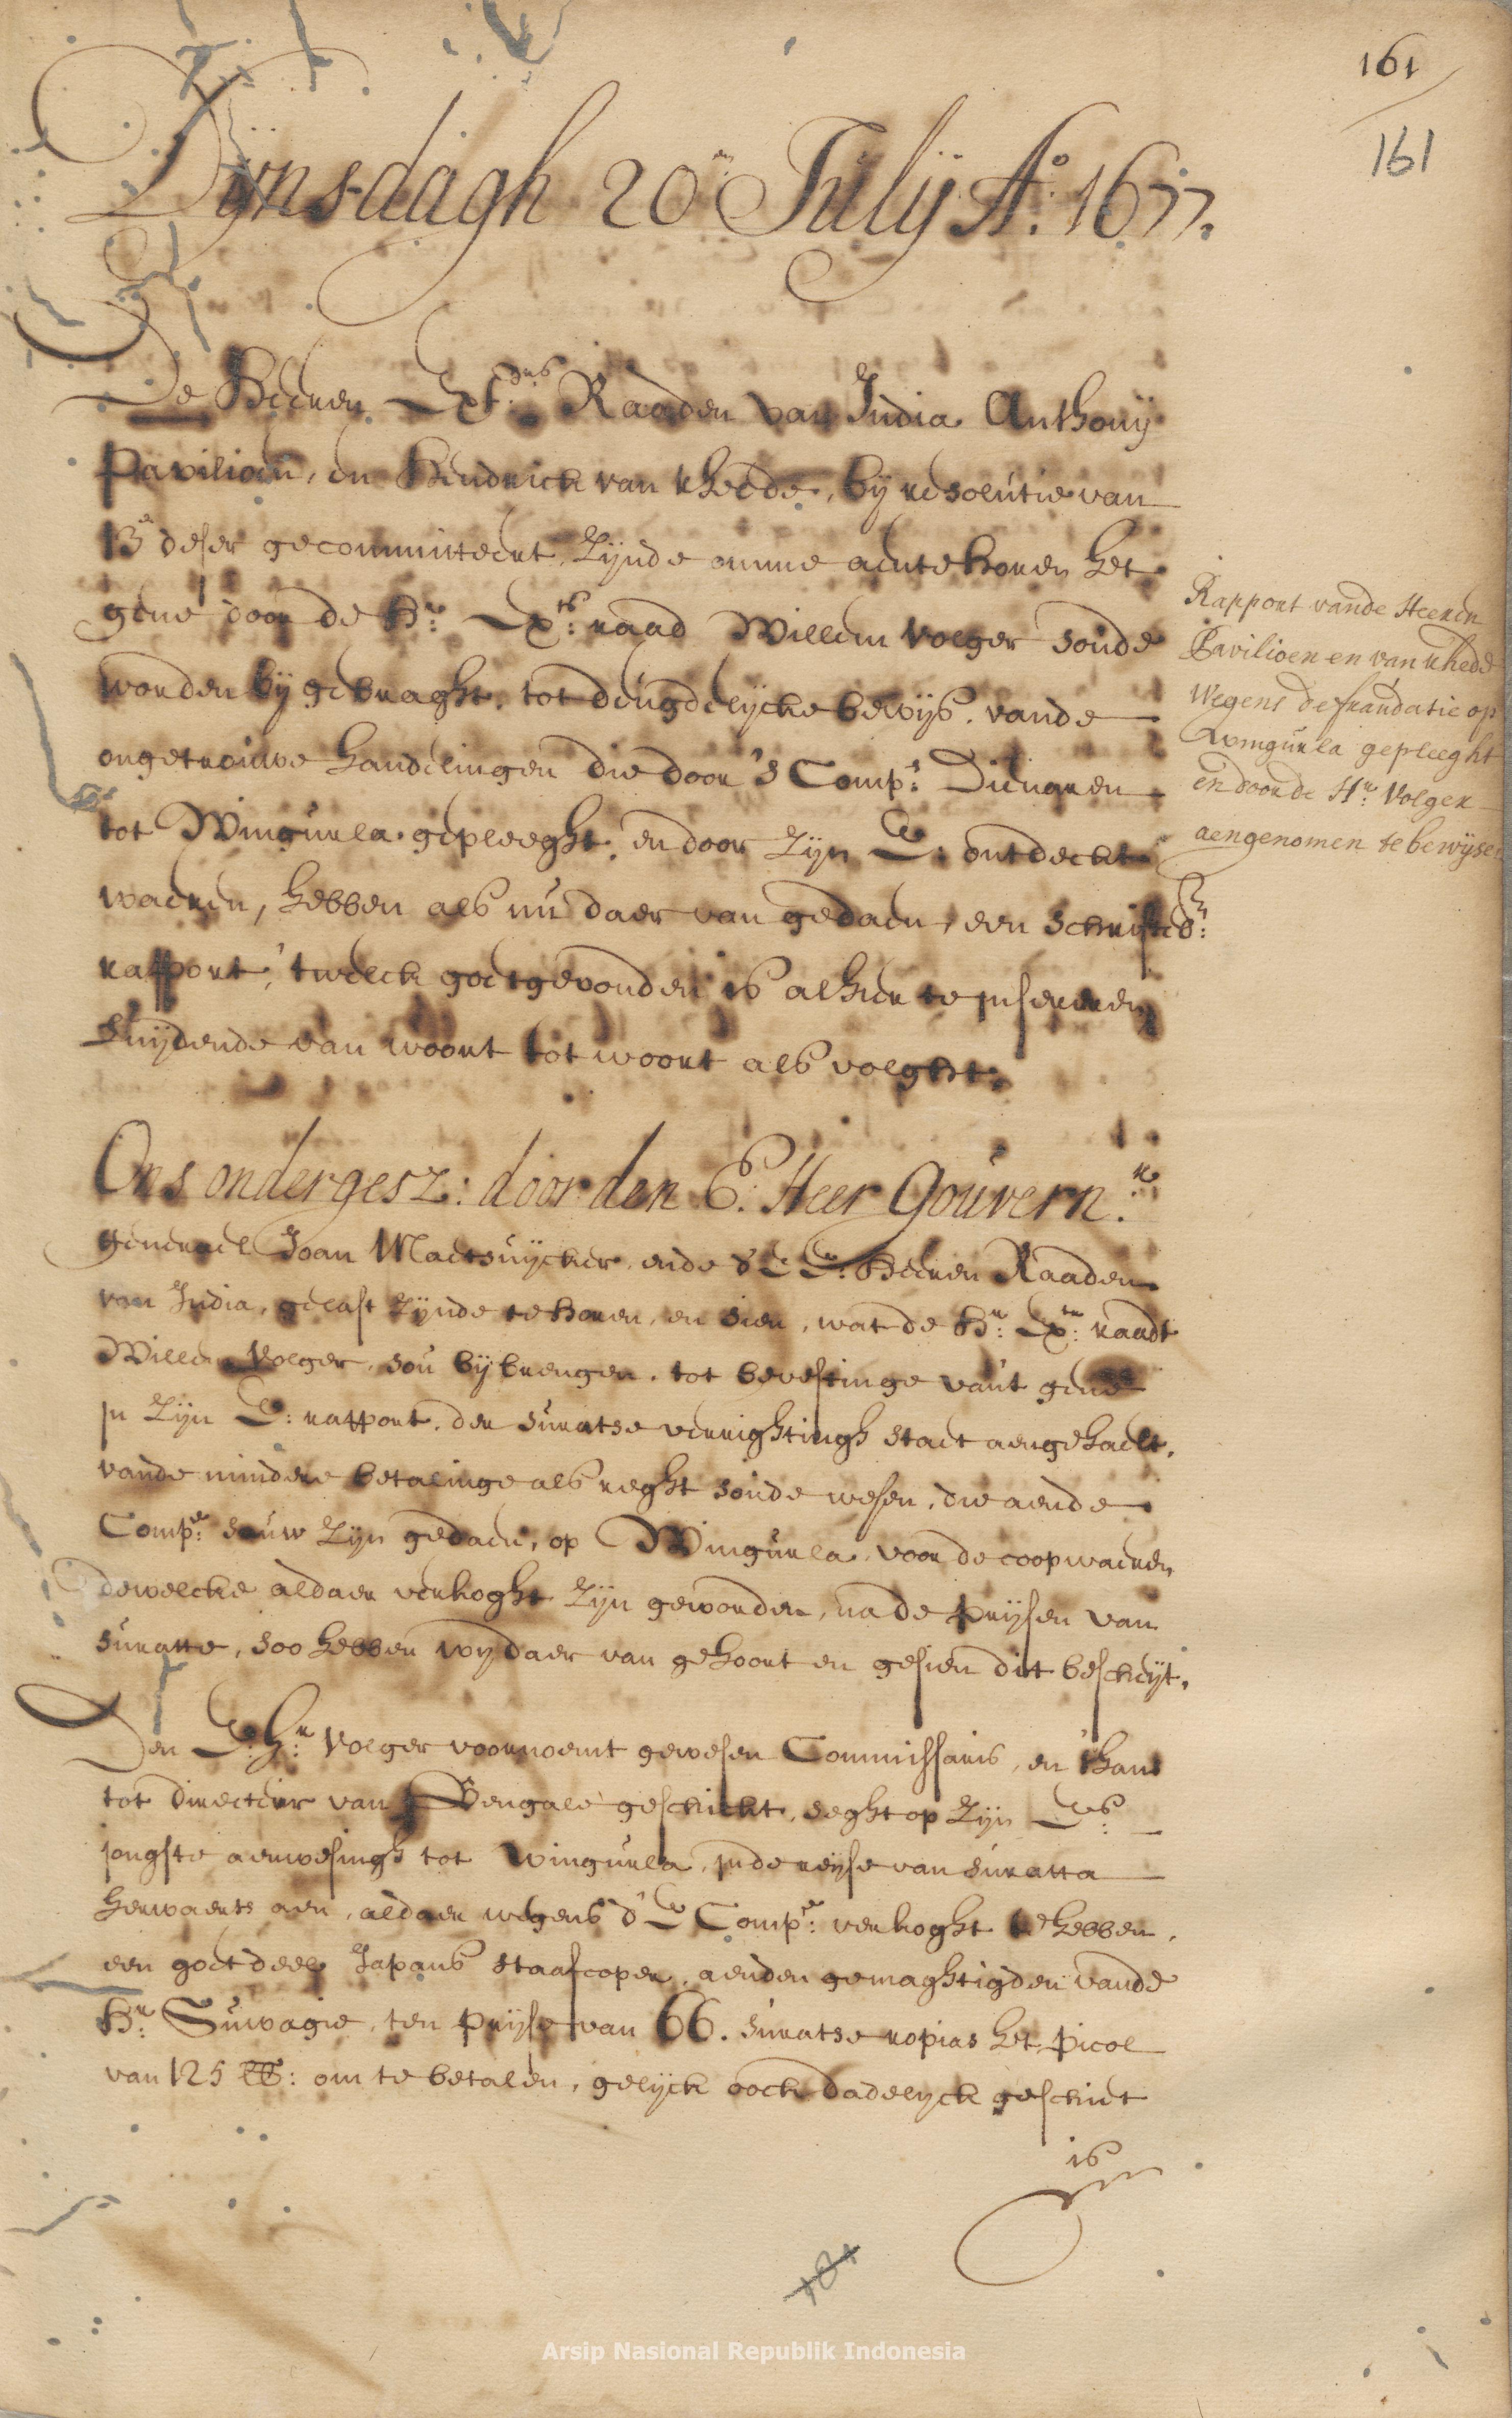 161
161
Dijnsdagh 20en Julij Ao. 1677.
De Heeren Ext: Raaden van India Anthonij
Pavilioen, en Hendrick van Rheede, bij resolutie van
13e deser gecommitteert zijnde omme aentehooren het
gene door de Hr: Ex: raad Willem Volger soude
worden bij gebraght, tot deugdelijcke bewijs vande
ongetrouwe handelingen die door 's Comps: Dienaren
tot Wingurla gepleeght, en door zijn E: ontdeckt
waeren, hebben als nu daer van gedaen, een schriftel:
rapport, 't welck goetgevonden is alhier te insereren
Luijdende van woort tot woort als volght.
Rapport vande Heeren
Pavilioen en van Rhede
Wegens de fraudatie op
Wingurla gepleeght
en door de Hr: Volger
aengenomen te bewijsen
Ons ondergesz: door den E: Heer Gouvern:r
generael Joan Maetsuijcker, ende d' E E: Heeren Raaden
van India, gelast zijnde te hooren, en sien, wat de Hr: Ex: raadt
Willem Volger, sou bijbrengen, tot bevestinge van't gene
in zijn E: rapport, der Suratse verrightingh staet aengehaelt,
vande mindere betalinge als reght soude wesen, die aende
Compe: souw zijn gedaen, op Wingurla, voor de coopwaeren
dewelcke aldaer verkoght zijn geworden, na de prijsen van
Suratte, soo hebben wij daer van gehoort en gesien dit bescheijt.
Den E: Hr: Volger voornoemt gewesen Commissaris, en thans
tot directeur van Bengale geschickt, seght op zijn Es:
jongste aenwesingh tot Wingurla, in de reijse van Suratta
herwaerts aen, aldaer wegens d' E Compe: verkoght te hebben,
een goet deel Japans staafcoper, aenden gemaghtigden vande
Hr: Suwagie, ten prijse van 66. Suratse ropias het picol
van 125 lb: om te betalen, gelijck oock dadelijck geschiet
is
181
Arsip Nasional Republik Indonesia